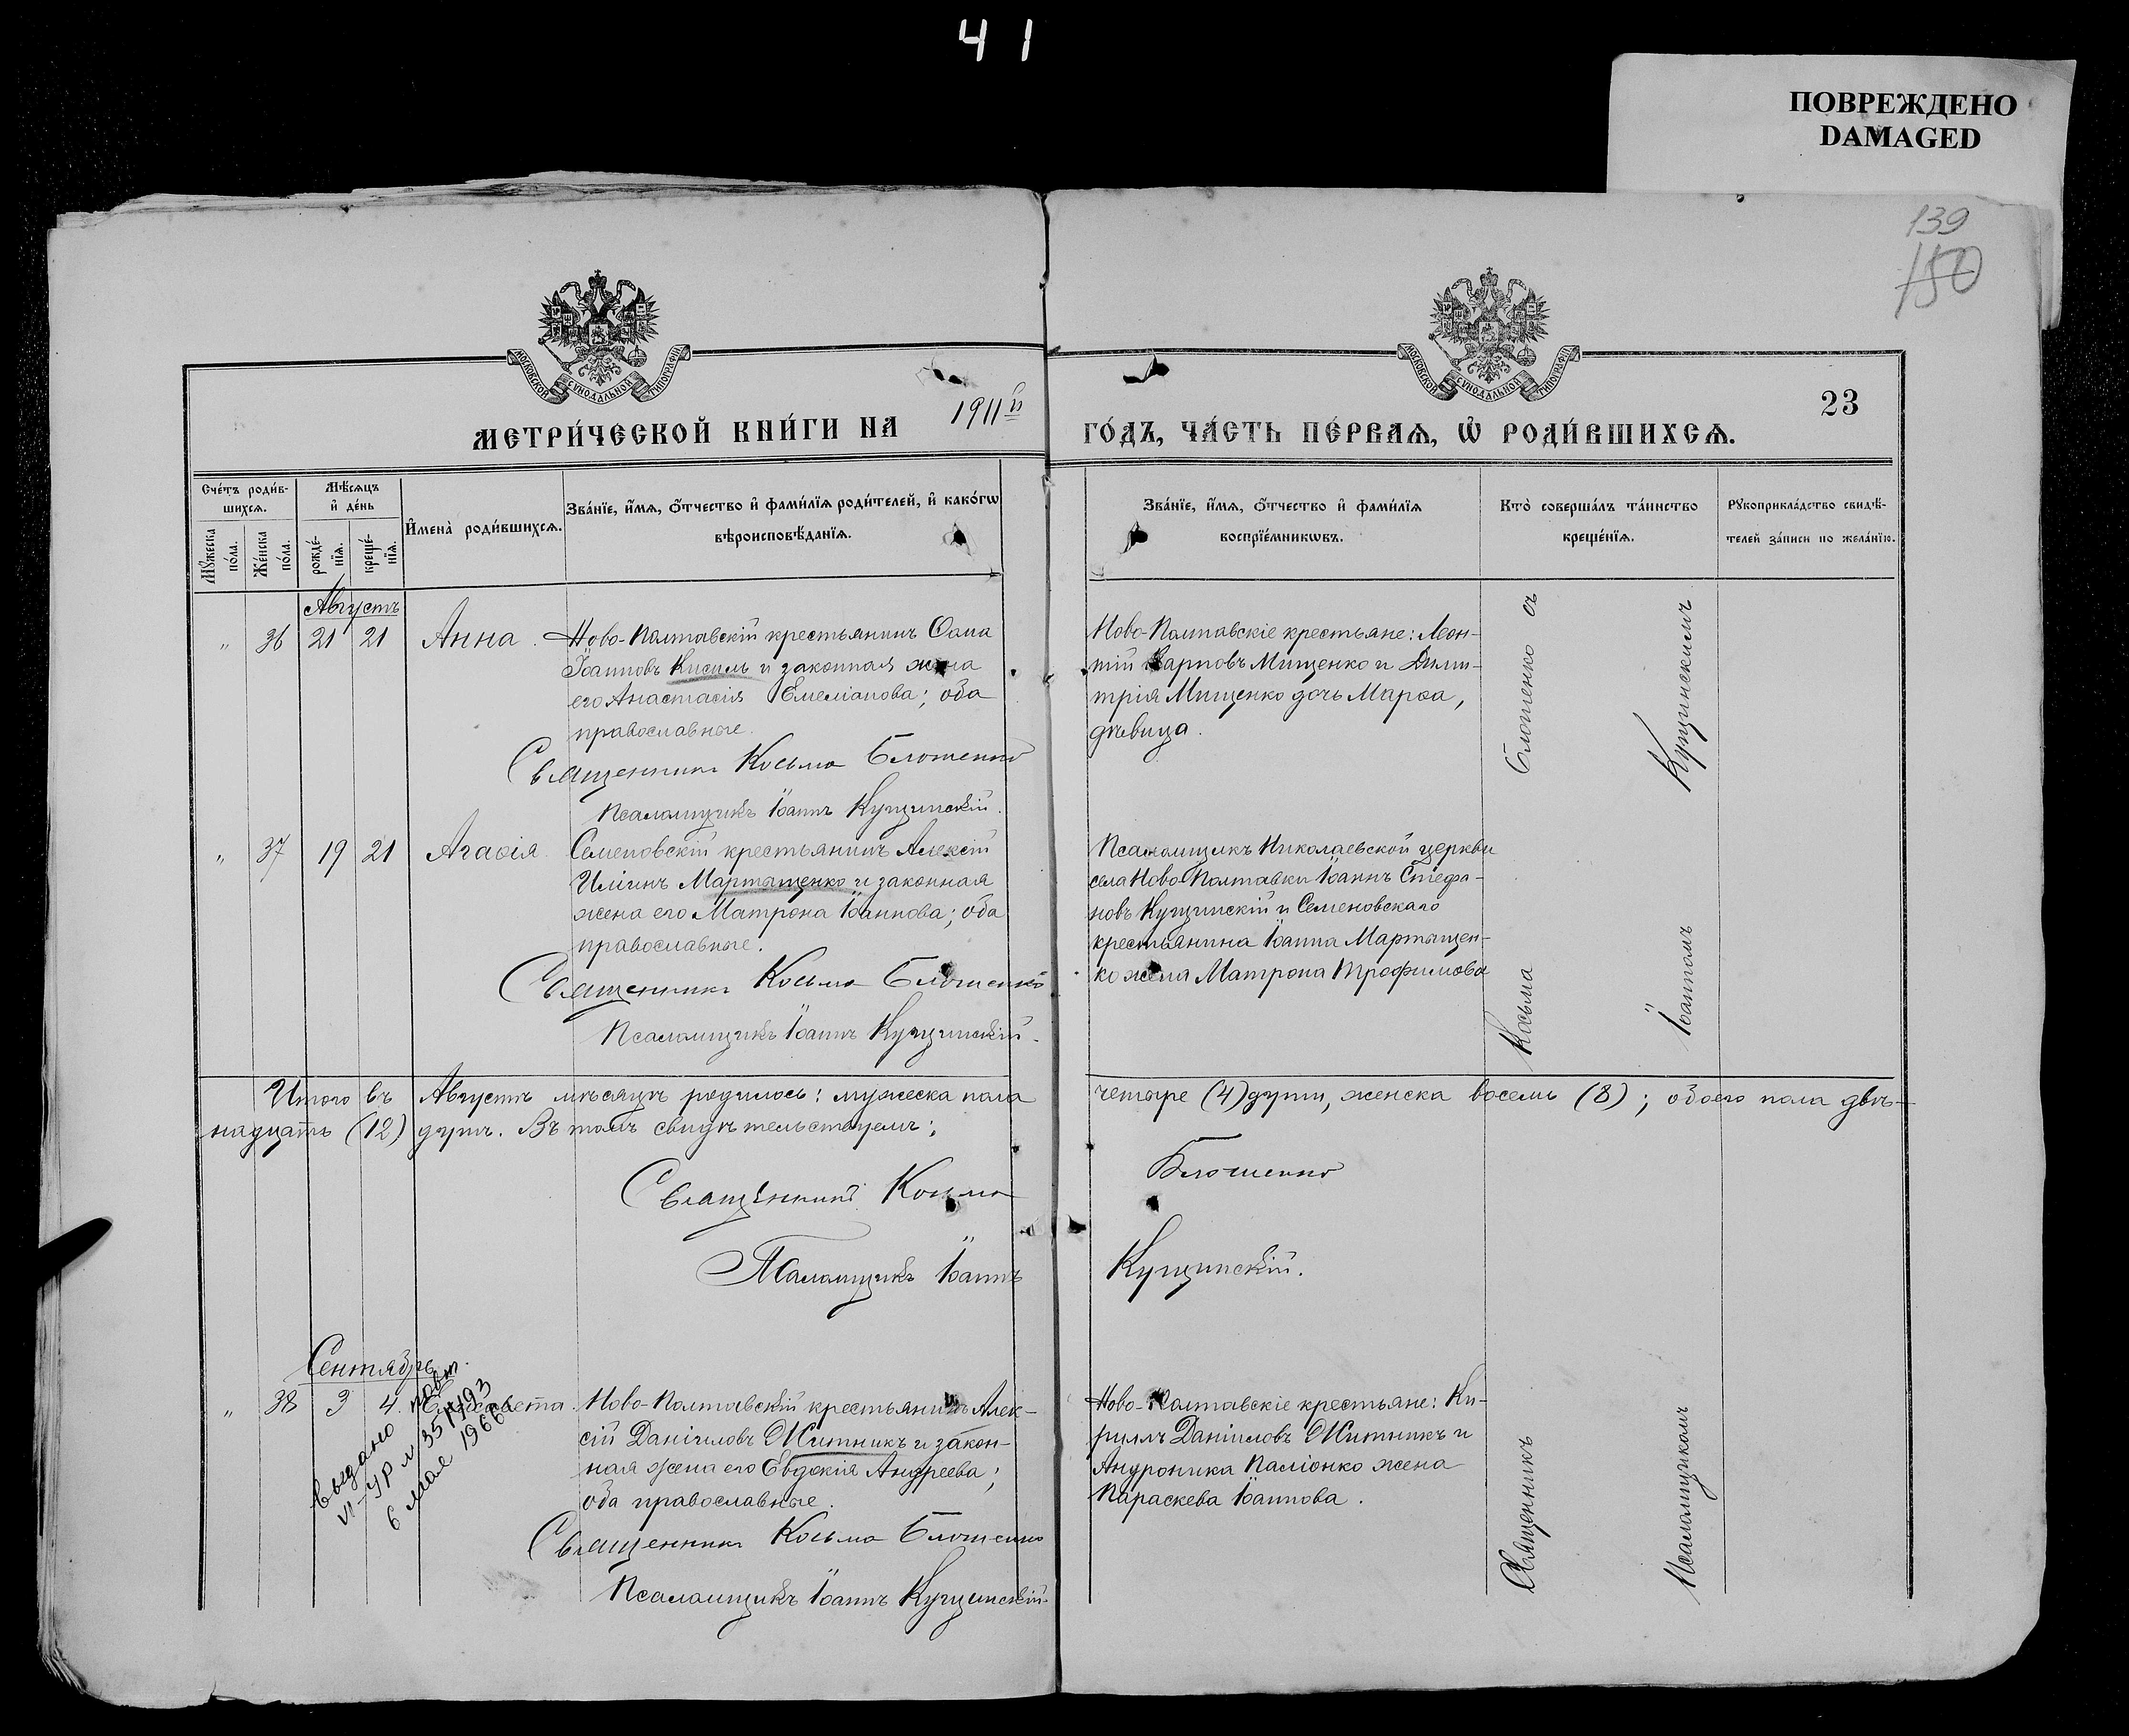 41
ПОВРЕЖДЕНО
DAMAGED
139
150
МОСКОВСКОЙ СУНОДАЛЬНОЙ ТИПОГРАФІИ
МОСКОВСКОЙ СУНОДАЛЬНОЙ ТИПОГРАФІИ
МЕТРИ́ЧЕСКОЙ КНИ́ГИ НА 1911й ГО́ДЪ, ЧА́СТЬ ПЕ́РВАѦ, Ѡ РОДИ́ВШИХСѦ.
23
Сче́тъ роди́в-
шихсѧ.
Мꙋжеска по́ла.
Же́нска по́ла.
Мѣ́сѧцъ
и҆ де́нь
рожде́-
нїѧ.
креще́-
нїѧ.
И҆мена̀ роди́вшихсѧ.
Зва́нїе, и҆́мѧ, ѻ҆́тчество и҆ фами́лїѧ роди́телей, и҆ како́гѡ
вѣроисповѣ́данїѧ.
Зва́нїе, и҆́мѧ, ѻ҆́тчество и҆ фами́лїѧ
воспрїе́мникѡвъ.
Кто̀ соверша́лъ та́инство
креще́нїѧ.
Рꙋкоприкла́дство свидѣ́-
телей за́писи по жела́нїю.
Августъ
" 36 21 21 Анна.
Ново-Полтавскій крестьянинъ Ѳома
Іоанновъ Кисиль и законная жена
его Анастасія Емеліанова; оба
православные.
Священникъ Косьма Блошенко
Псаломщикъ Іоаннъ Кущинскій.
Ново-Полтавскіе крестьяне: Леон-
тій Карповъ Мищенко и Дими-
трія Мищенко дочь Марѳа,
дѣвица.
" 37 19 21 Агаѳія.
Семеновскій крестьянинъ Алексій
Иліинъ Мартыщенко и законная
жена его Матрона Іоаннова; оба
православные.
Священникъ Косьма Блошенко
Псаломщикъ Іоаннъ Кущинскій.
Псаломщикъ Николаевской церкви
села Ново-Полтавки Іоаннъ Стефа-
новъ Кущинскій и Семеновскаго
крестьянина Іоанна Мартыщен-
ко жена Матрона Трофимова
Итого въ Августѣ мѣсяцѣ родилось: мужеска пола четыре (4) души, женска восемь (8); обоего пола двѣ-
надцать (12) душъ. Въ томъ свидѣтельствуемъ:
Священникъ Косьма Блошенко
Псаломщикъ Іоаннъ Кущинскій.
Сентябрь.
" 38 3 4. Елисавета.
выдано повт.
6 мая 1966
Ново-Полтавскій крестьянинъ Алек-
сій Даніиловъ Житникъ и закон-
ная жена его Евдокія Андреева;
оба православные.
Священникъ Косьма Блошенко
Псаломщикъ Іоаннъ Кущинскій.
Ново-Полтавскіе крестьяне: Ки-
риллъ Даніиловъ Житникъ и
Андроника Паліонко жена
Параскева Іоаннова.
Священникъ Косьма Блошенко съ
Псаломщикомъ Іоанномъ Кущинскимъ